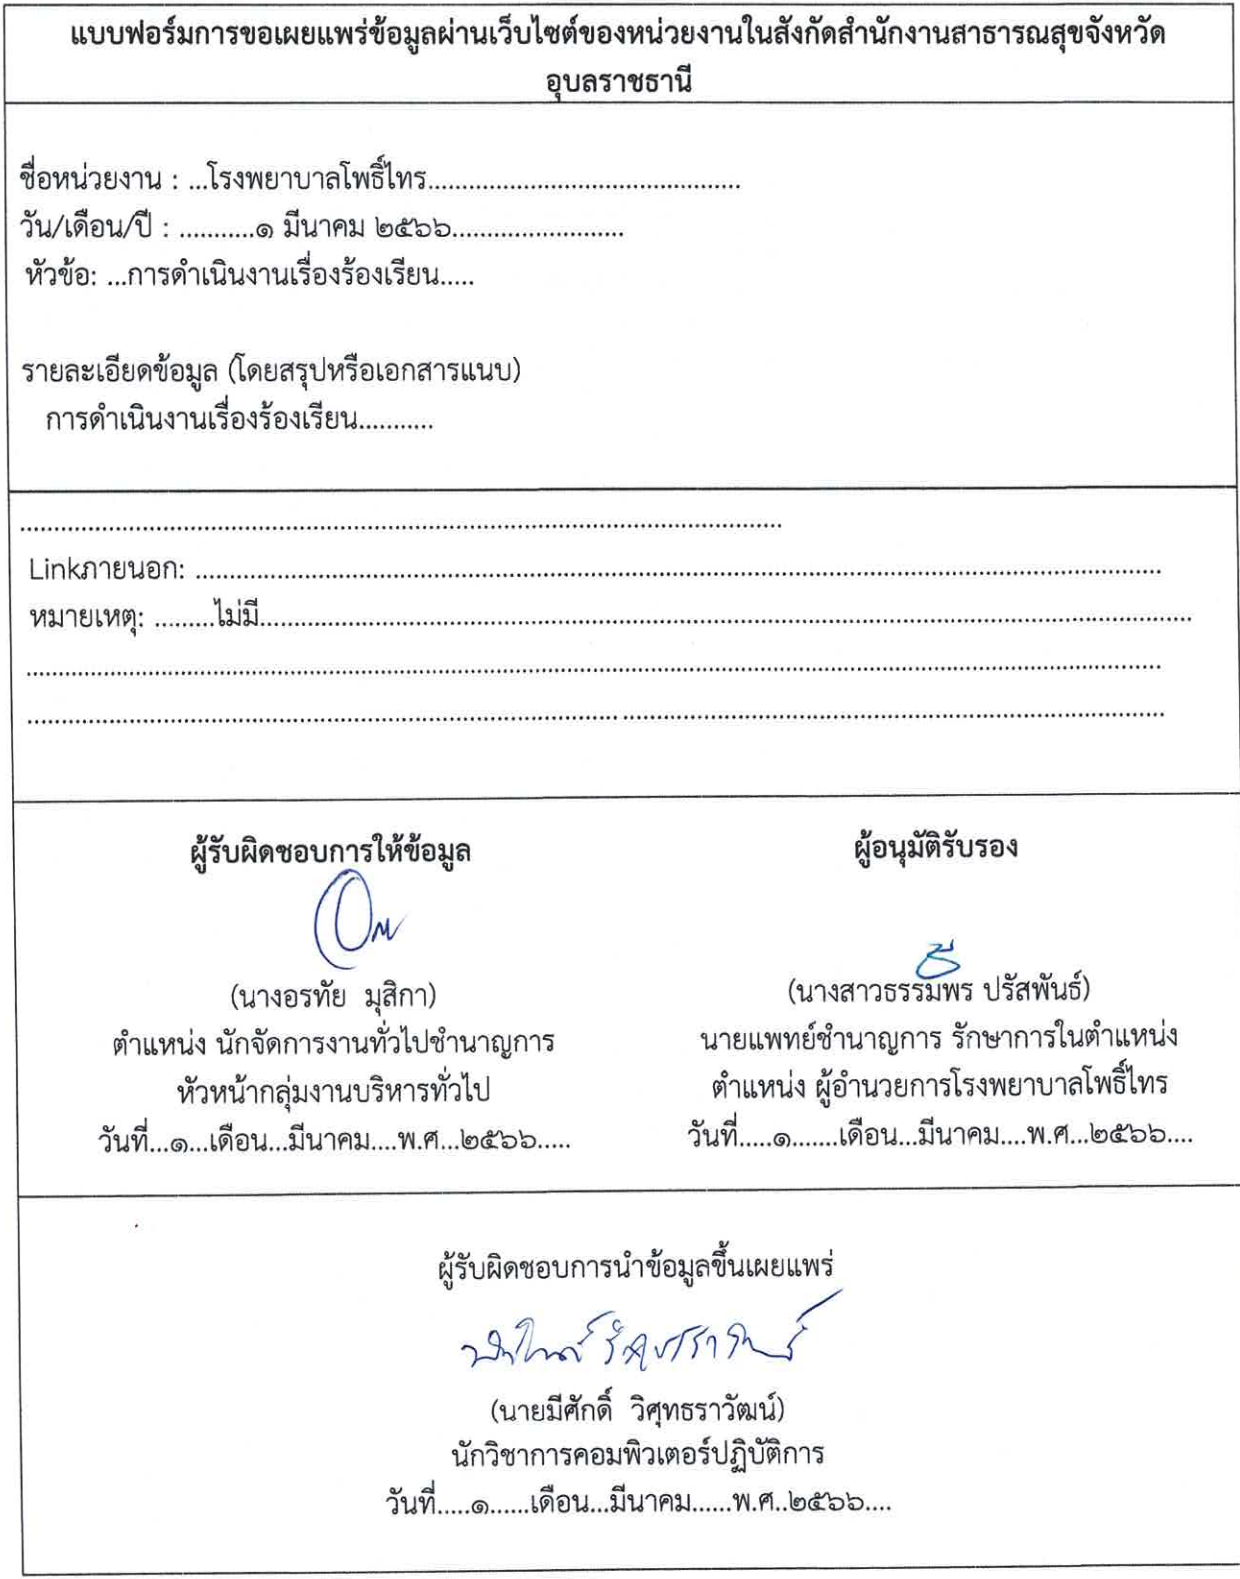 แบบฟอร์มการขอเผยแพร่ข้อมูลผ่านเว็บไซต์ของหน่วยงานในสังกัดสำนักงานสาธารณสุขจังหวัด
อุบลราชธานี
ชื่อหน่วยงาน : ...โรงพยาบาลโพธิ์ไทร...............................................
วัน/เดือน/ปี : ...........๑ มีนาคม ๒๕๖๖.........................
หัวข้อ: ...การดำเนินงานเรื่องร้องเรียน.....
รายละเอียดข้อมูล (โดยสรุปหรือเอกสารแนบ)
การดำเนินงานเรื่องร้องเรียน...........
Linkภายนอก: ................................................................................
หมายเหตุ: .........ไม่มี................................................................................
ผู้รับผิดชอบการให้ข้อมูล
(นางอรทัย มุสิกา)
ตำแหน่ง นักจัดการงานทั่วไปชำนาญการ
หัวหน้ากลุ่มงานบริหารทั่วไป
วันที่...๑...เดือน...มีนาคม....พ.ศ...๒๕๖๖.....
ผู้อนุมัติรับรอง
(นางสาวธรรมพร ปรัสพันธ์)
นายแพทย์ชำนาญการ รักษาการในตำแหน่ง
ตำแหน่ง ผู้อำนวยการโรงพยาบาลโพธิ์ไทร
วันที่.....๑.......เดือน...มีนาคม....พ.ศ...๒๕๖๖....
ผู้รับผิดชอบการนำข้อมูลขึ้นเผยแพร่
(นายมีศักดิ์ วิศุทธราวัฒน์)
นักวิชาการคอมพิวเตอร์ปฏิบัติการ
วันที่.....๑......เดือน...มีนาคม......พ.ศ..๒๕๖๖....